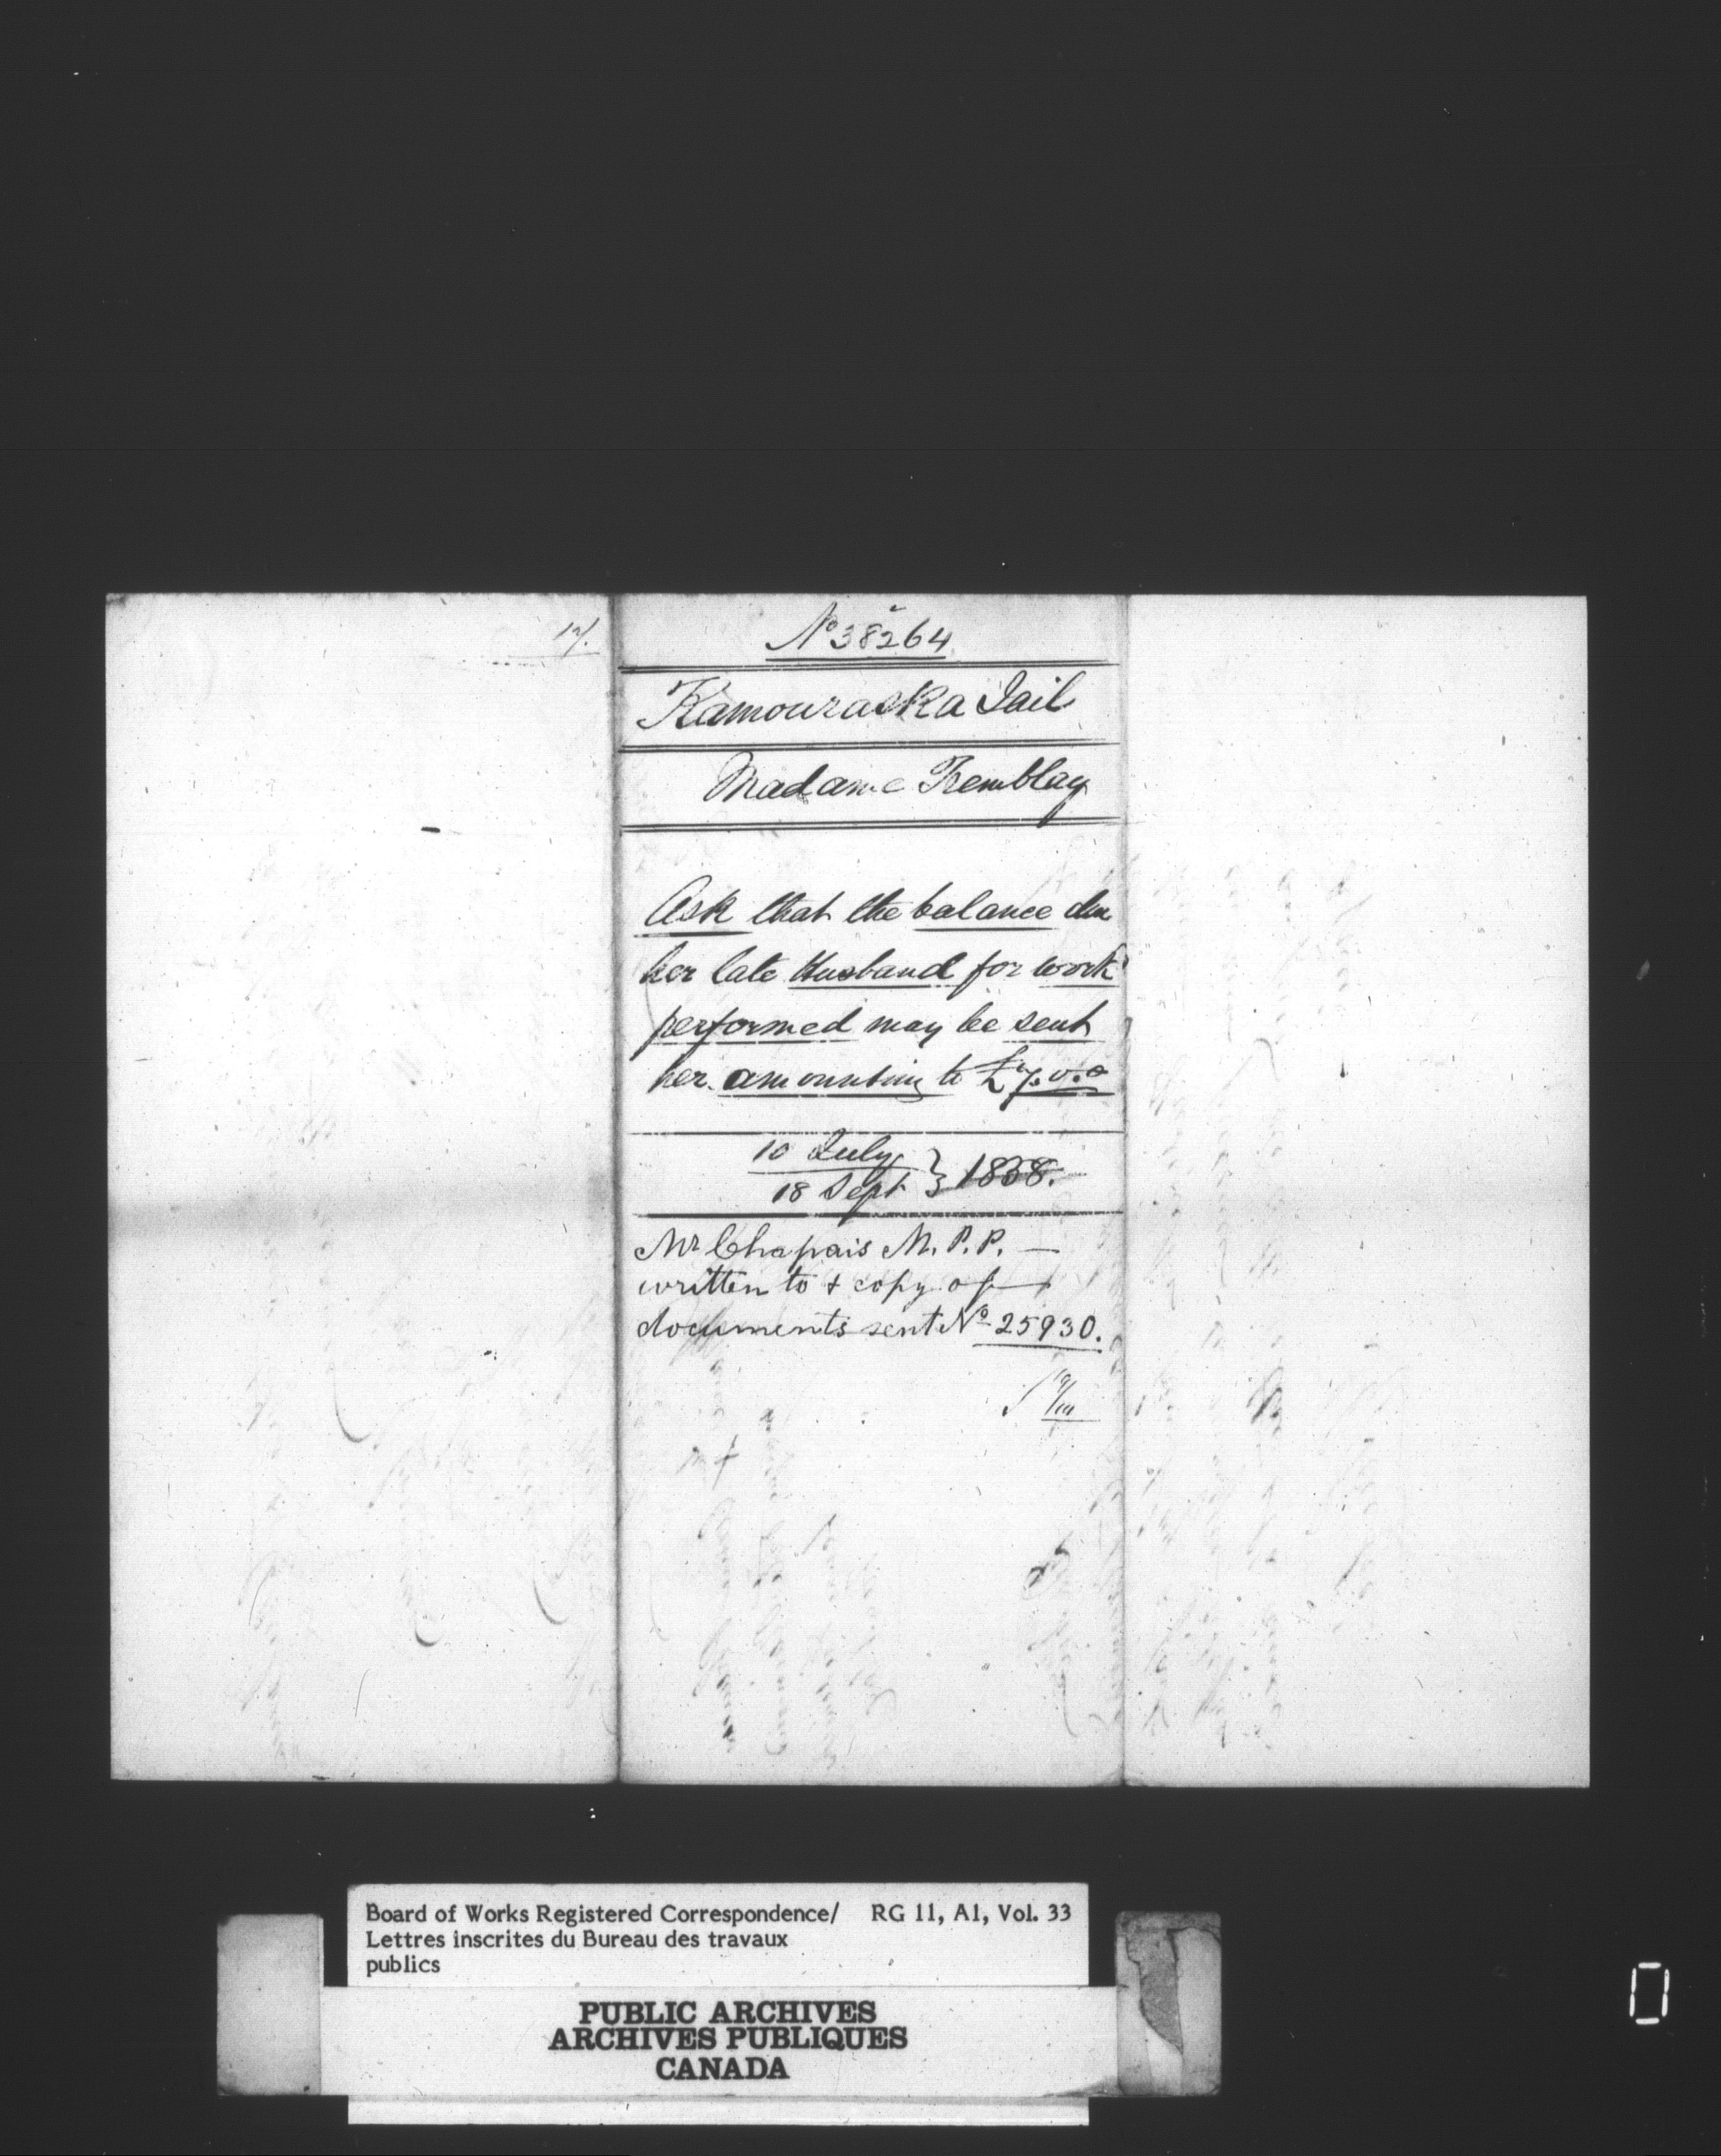 No 38264
Kamouraska Jail
Madame Tremblay
Ask that the balance due
her late Husband for work
performed may be sent
her amounting to £7.0.0
10 July
18 Sept } 1858.
Mr Chapais M.P.P. —
written to + copy of
documents sent No 25930.
Board of Works Registered Correspondence/ RG 11, A1, Vol. 33
Lettres inscrites du Bureau des travaux
publics
PUBLIC ARCHIVES
ARCHIVES PUBLIQUES
CANADA